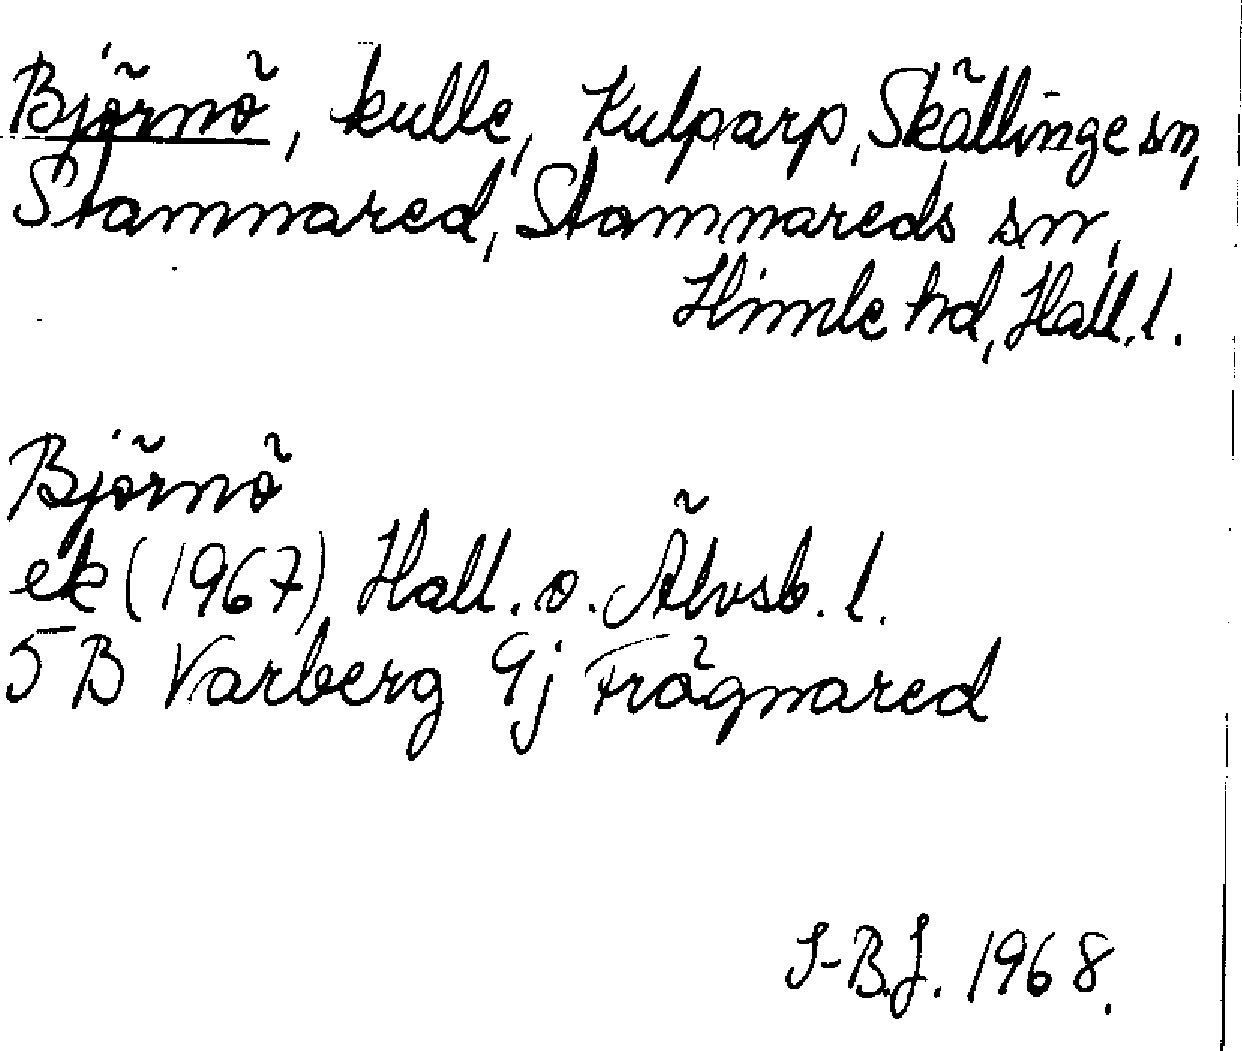 Björnö, kulle, Kulparp, Skällinge sn,
Stamnared, Stamnareds sn,
Himle hd, Hall. l.
Björnö
ek (1967), Hall. o. Älvsb. l.
5B Varberg 9j Frögnared
I-B.J. 1968.